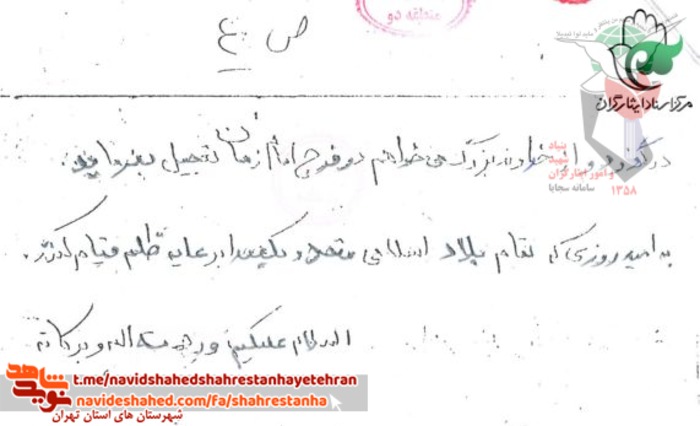 منطقه دو
ص ٤
مرکز اسناد ایثارگران
درگذرد و از خداوند بزرگ می‌خواهم در فرج امام زمان تعجیل بفرماید.
بنیاد
شهید
و امور ایثارگران
سامانه سجایا
۱۳۵۸
به امید روزی که تمام بلاد اسلامی متحد و یکصدا بر علیه ظلم قیام کنند.
السلام علیکم و رحمت اله و برکاته
نوید شاهد
t.me/navidshahedshahrestanhayetehran
navideshahed.com/fa/shahrestanha
شهرستان های استان تهران